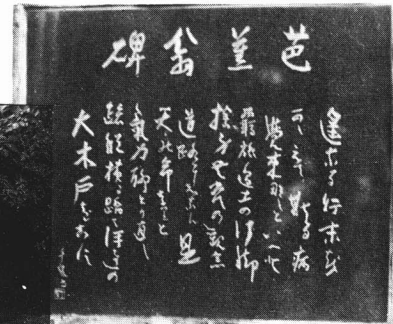 芭蕉翁碑
遙なる行末を
かゝえて斯る病
覚束なしといへど
羇旅辺土の行脚
捨身無常の観念
道路にしなん是
天の命なりと
気力聊とり直し
路縦横に踏で伊達の
大木戸をこす